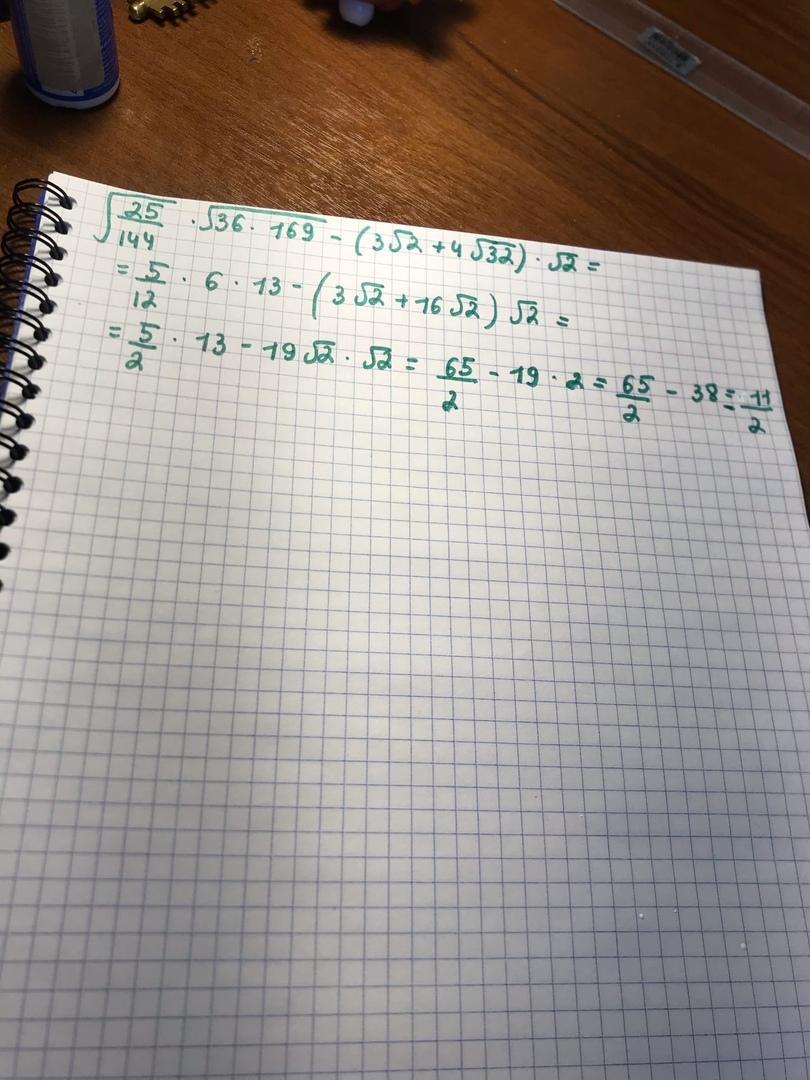 √(25/144) · √(36 · 169) - (3√2 + 4√32) · √2 =
= 5/12 · 6 · 13 - (3√2 + 16√2) √2 =
= 5/2 · 13 - 19√2 · √2 = 65/2 - 19 · 2 = 65/2 - 38 = -11/2